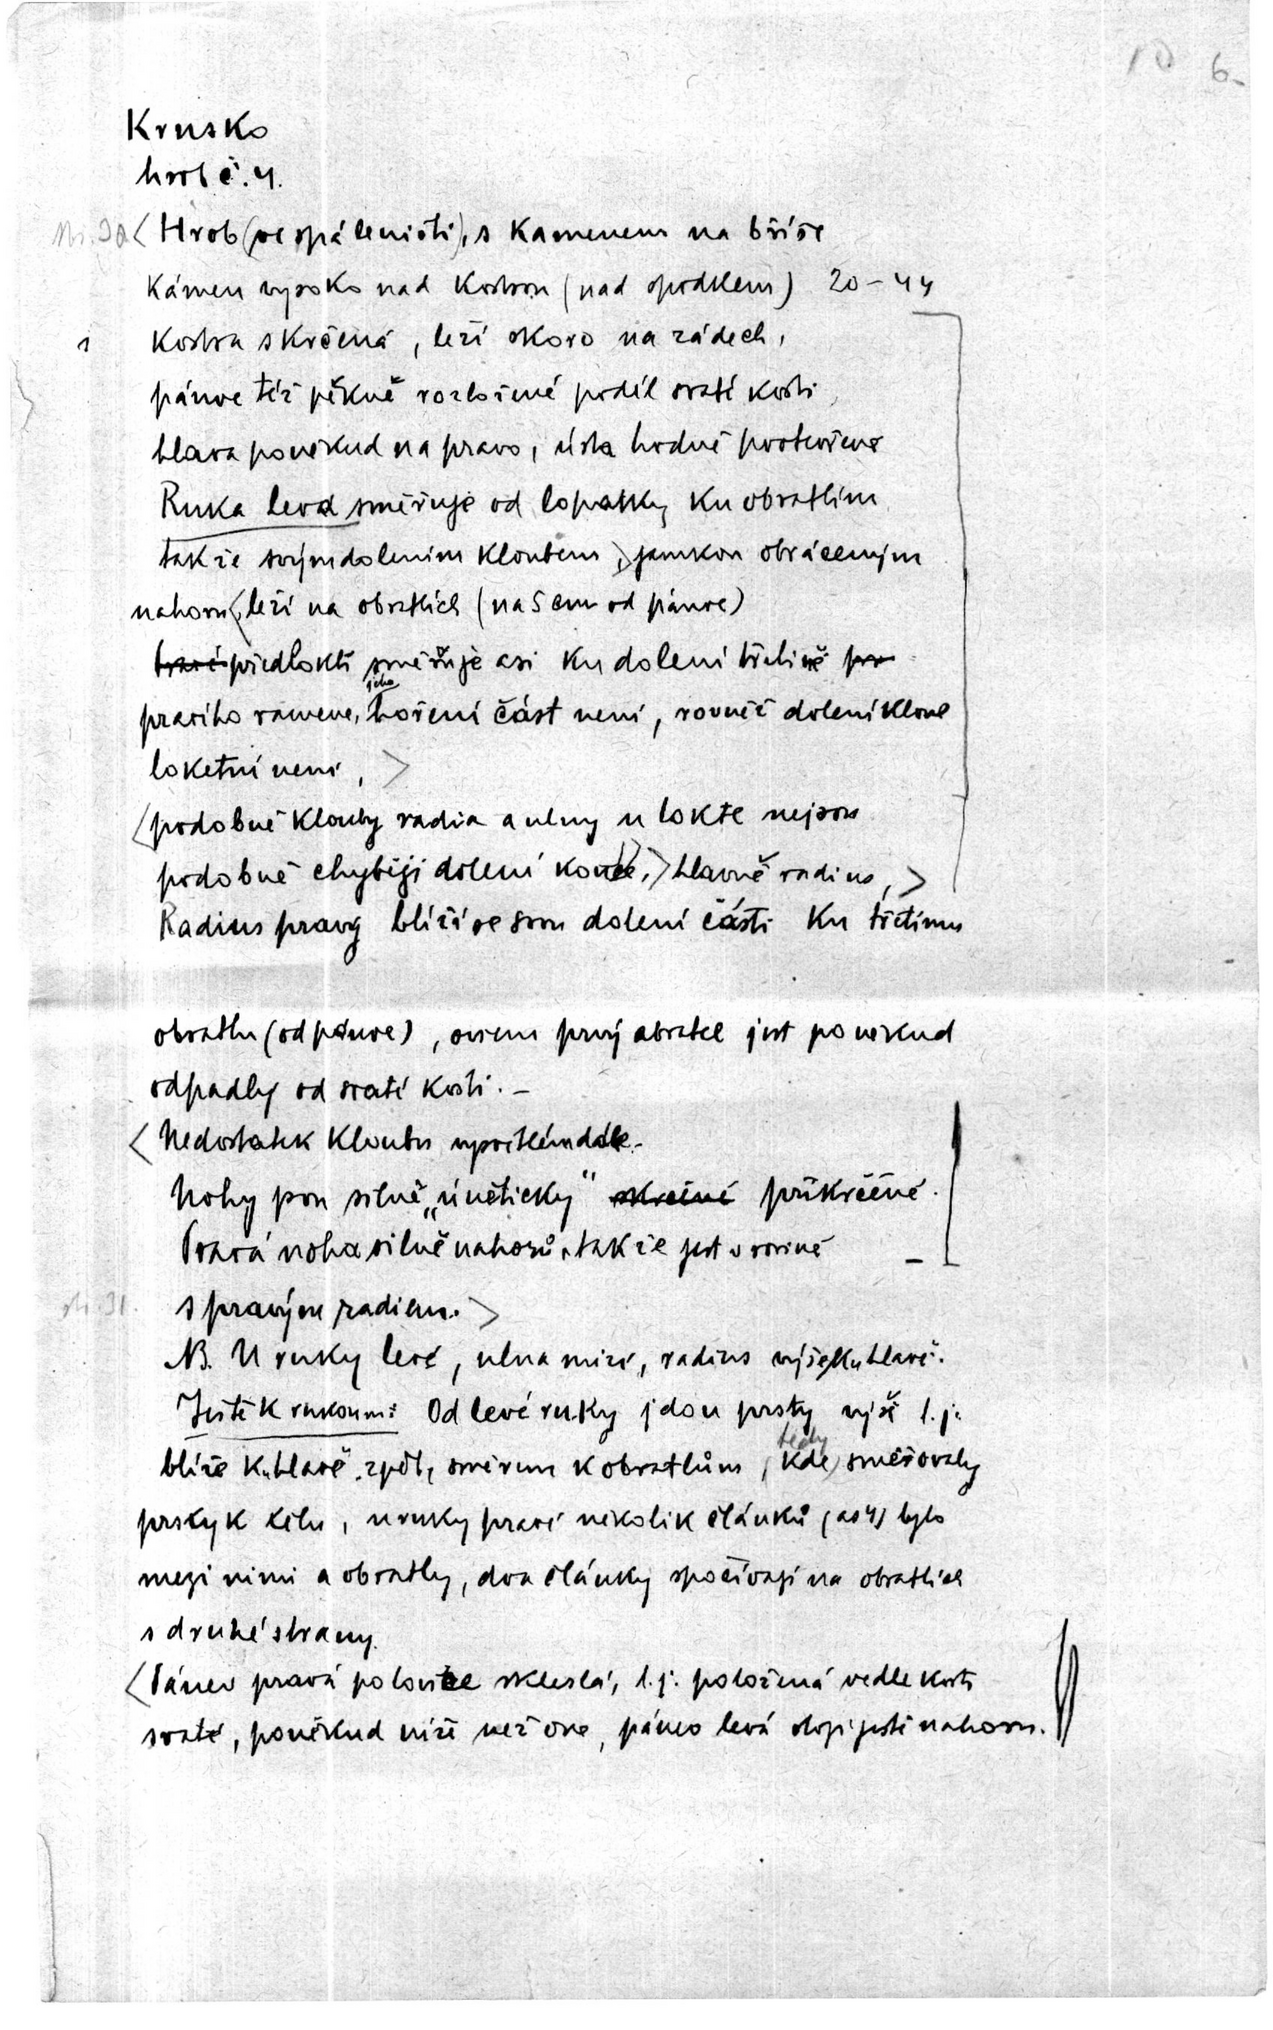 10 6.
Krusko
hrob č. 4.
< Hrob (ve spáleništi), s kamenem na břiše
Kámen vysoko nad kostrou (nad spodkem) 20-44
s kostra skrčená, leží skoro na zádech,
pánve též pěkně rozložené podél svaté kosti,
hlava poněkud na pravo, ústa hodně pootevřena
Ruka levá směřuje od lopatky ku obratlím
takže svým dolením kloubem > jamkou obráceným
nahoru < leží na obratlích (na 5 cm od pánve)
předloktí směřuje asi ku dolení třetině pra
pravího ramene, jeho hoření část není, rovněž dolení kloub
loketní není, >
< podobně klouby radia a ulny u lokte nejsou
podobně chybějí dolení konce, > hlavně radius, >
Radius pravý blíží se svou dolení částí ku třetímu
obratlu (od pánve), ovšem prvý obratel jest poněkud
odpadlý od svaté kosti. -
< Nedostatek kloubu vysvětlím dále.
Nohy jsou silně „úněticky“ skrčené přikrčéné.
Pravá noha silně nahorů, takže jest v rovině
s pravým radiem. >
NB. U ruky levé, ulna níže, radius výše ku hlavě.
Ještě k rukoum: Od levé ruky jdou prsty výš t. j.
blíže k hlavě zpět, směrem k obratlům, tedy kde směřovaly
prsty k tělu, u ruky pravé několik článků (as 4) bylo
mezi nimi a obratly, dva články spočívají na obratlích
s druhé strany.
< Pánev pravá polovice skleslá, t. j. položená vedle kosti
svaté, poněkud níže než one, pánev levá stojí ještě nahoru.